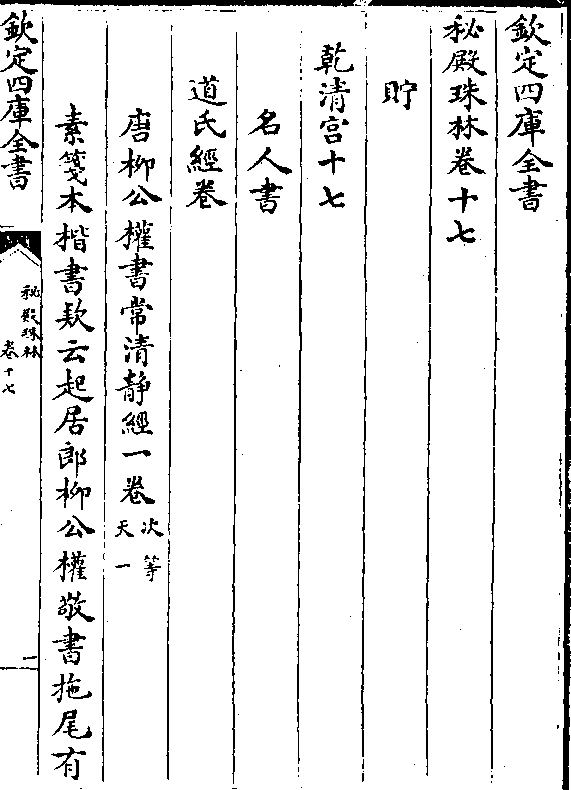 欽定四庫全書
秘殿珠林卷十七
貯
乾清宫十七
名人書
道氏經卷
唐柳公權書常清靜經一卷 次等 天一
素箋本楷書欵云起居郎柳公權敬書拖尾有
欽定四庫全書
秘殿珠林
卷十七
一